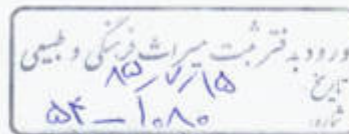 ورود به دفتر ثبت میراث فرهنگی و طبیعی
تاریخ ۸۵/۷/۱۵
شماره: ۵۴-۱۰۸۰